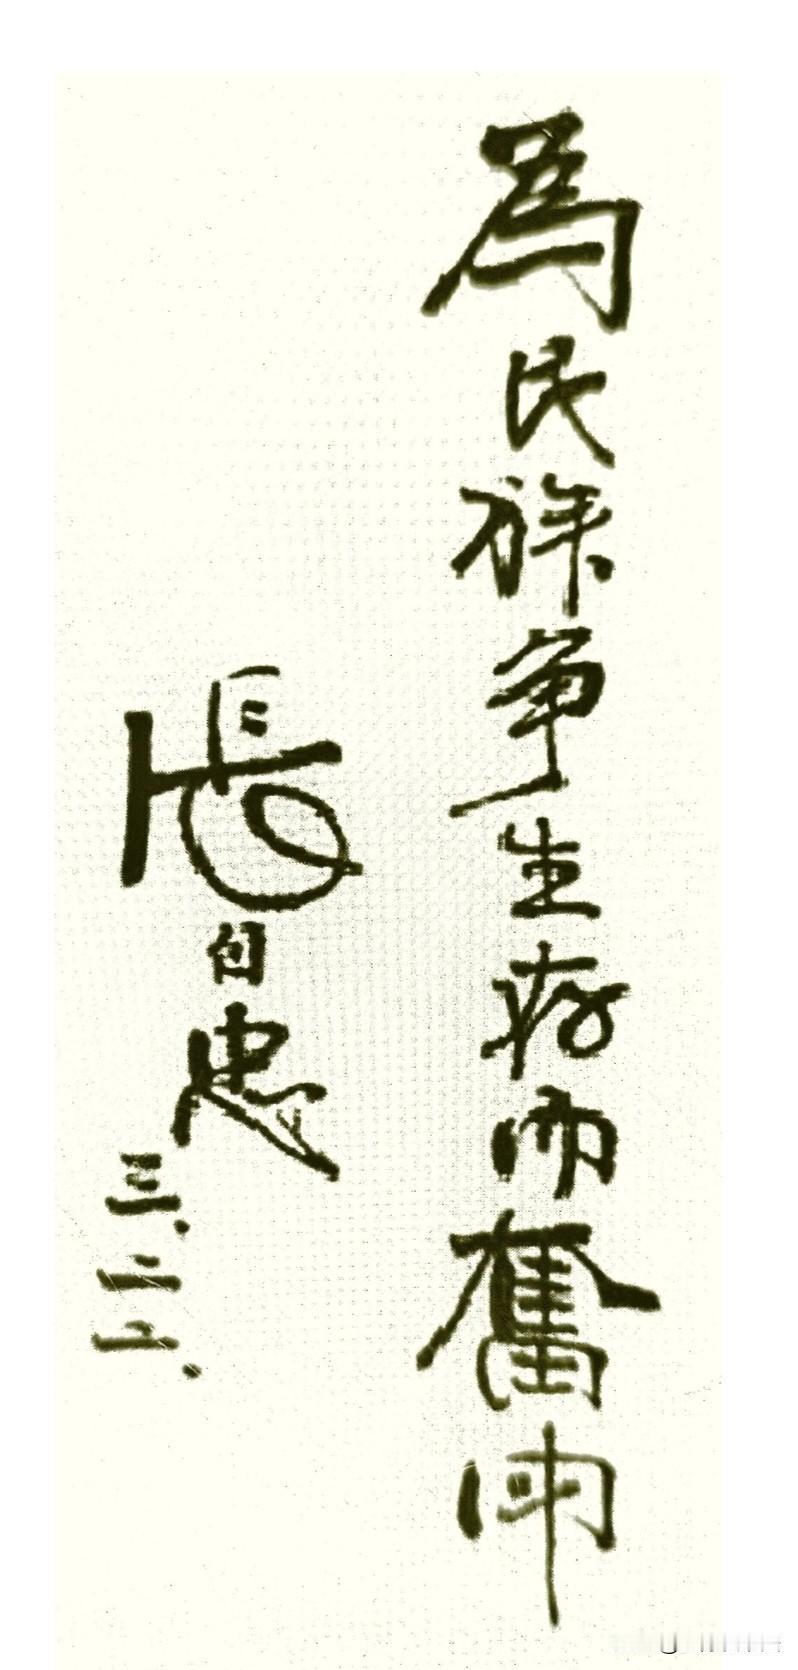 為民族争生存而奮鬥
張自忠
三.二二.